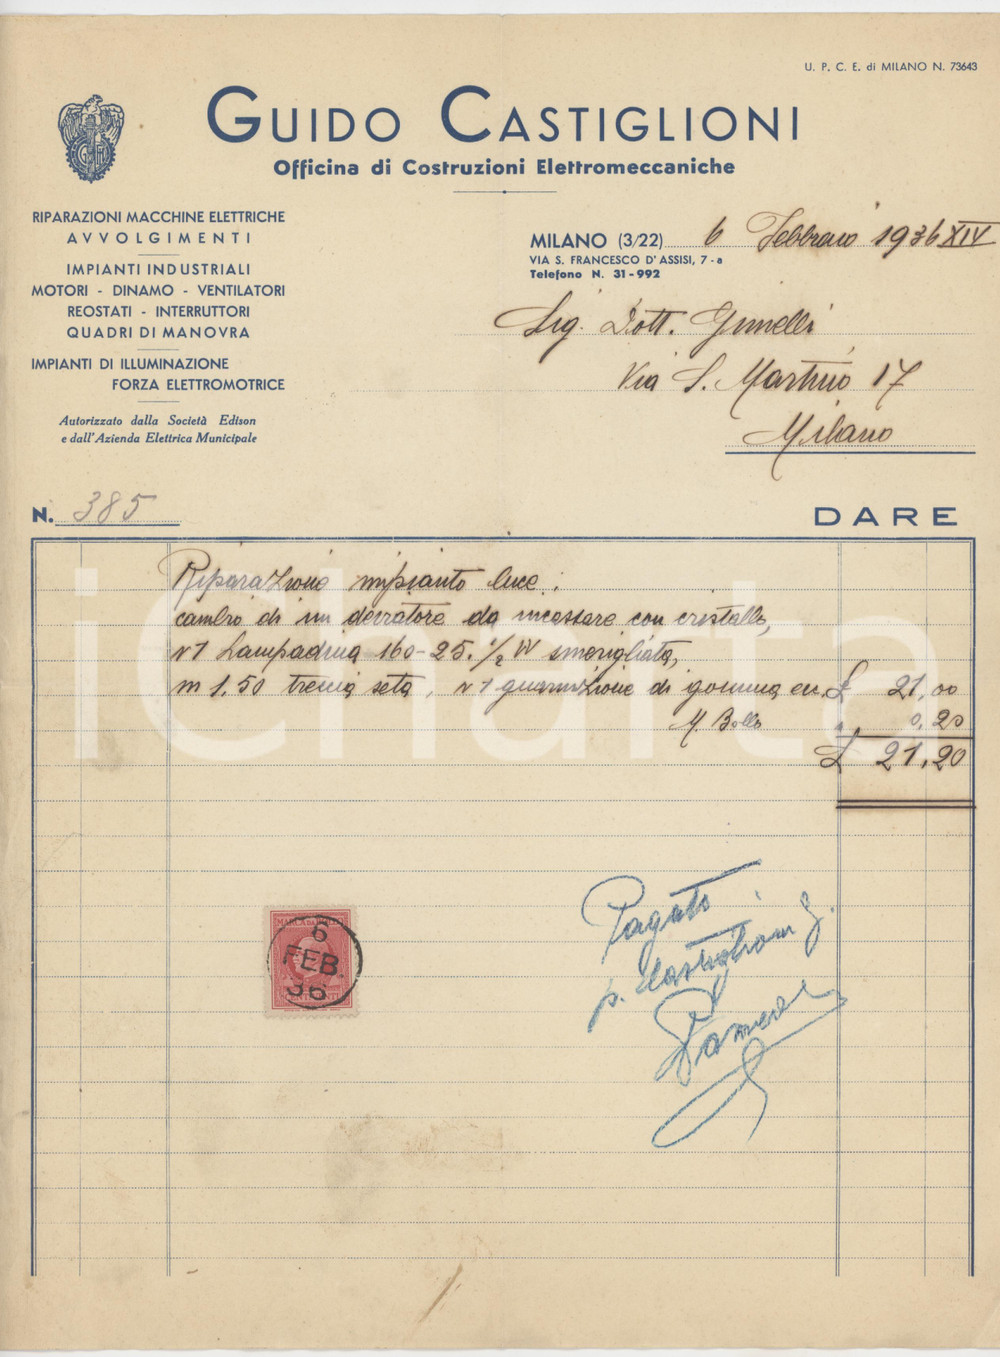 U. P. C. E. di MILANO N. 73643
GUIDO CASTIGLIONI
Officina di Costruzioni Elettromeccaniche
RIPARAZIONI MACCHINE ELETTRICHE
AVVOLGIMENTI
IMPIANTI INDUSTRIALI
MOTORI - DINAMO - VENTILATORI
REOSTATI - INTERRUTTORI
QUADRI DI MANOVRA
IMPIANTI DI ILLUMINAZIONE
FORZA ELETTROMOTRICE
Autorizzato dalla Società Edison
e dall'Azienda Elettrica Municipale
MILANO (3/22) 6 Febbraio 1936 XIV
VIA S. FRANCESCO D'ASSISI, 7-a
Telefono N. 31-992
Sig. Dott. Ginelli
Via S. Martino 17
Milano
N. 385
DARE
Riparazione impianto luce:
cambio di un deviatore da incassare con cristallo,
N 1 Lampadina 160-25. 1/2 W smerigliata,
m 1.50 treccia seta, N 1 guarnizione di gomma ecc. £ 21,00
M. Bollo 0,20
£ 21,20
6
FEB.
36
Pagato
p. Castiglioni G.
iCharta